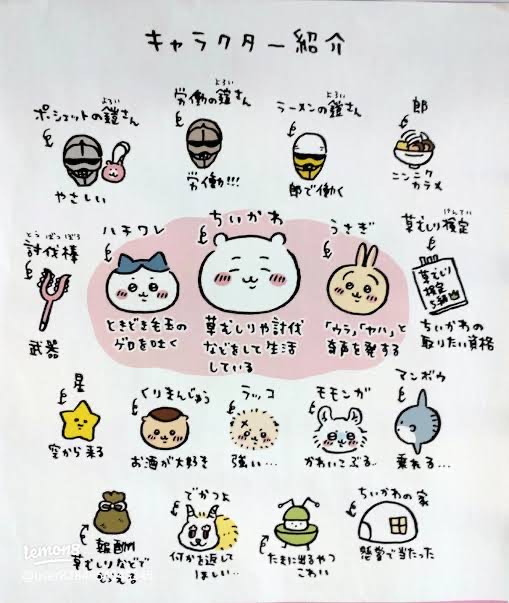 キャラクター紹介
ポシェットの鎧さん
よろい
やさしい
労働の鎧さん
よろい
労働!!!
ラーメンの鎧さん
よろい
郎で働く
郎
ニンニク
カラメ
討伐棒
とうばつぼう
武器
ハチワレ
ときどき毛玉の
ゲロを吐く
ちいかわ
草むしりや討伐
などをして生活
している
うさぎ
「ウラ」「ヤハ」と
奇声を発する
草むしり検定
けんてい
草むしり
検定
5級
ちいかわの
取りたい資格
星
空から来る
くりまんじゅう
お酒が大好き
ラッコ
強い…
モモンガ
かわいこぶる…
マンボウ
乗れる…
報酬
草むしりなどで
もらえる
でかつよ
何かを返して
ほしい…
たまに出るやつ
こわい
ちいかわの家
懸賞で当たった
lemon8